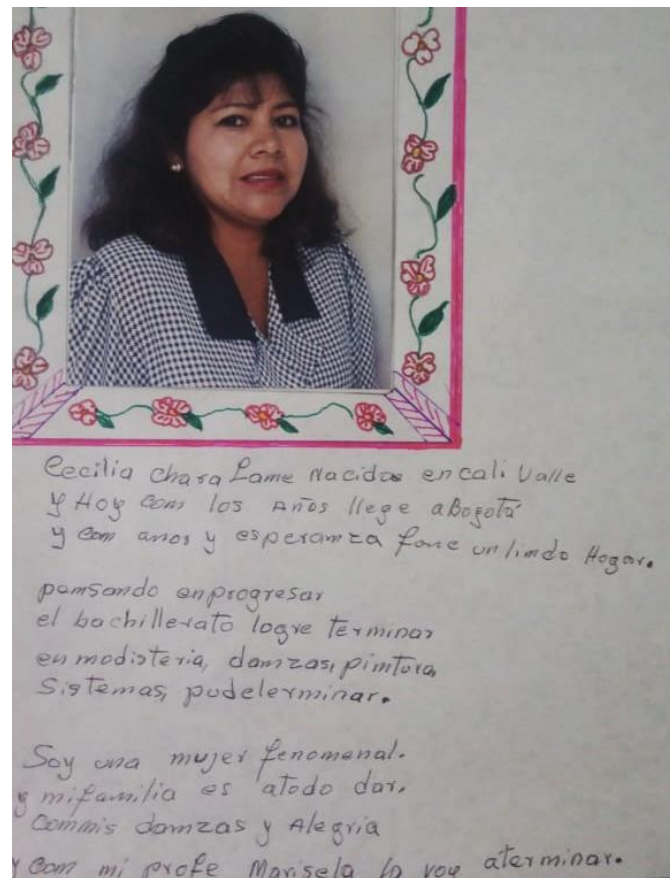 Cecilia chara Lame Nacidas en cali Valle
y Hoy com los Años llege aBogotá
y com anos y esperamza fome un limdo Hogar.
pemsando enprogresar
el bachillerato logre terminar
en modisteria, damzas, pimtura,
Sistemas, pudelerminar.
Soy una mujer fenomenal.
y mifamilia es atodo dar.
Commis damzas y Alegria
y com mi profe Marisela lo voy aterminar.